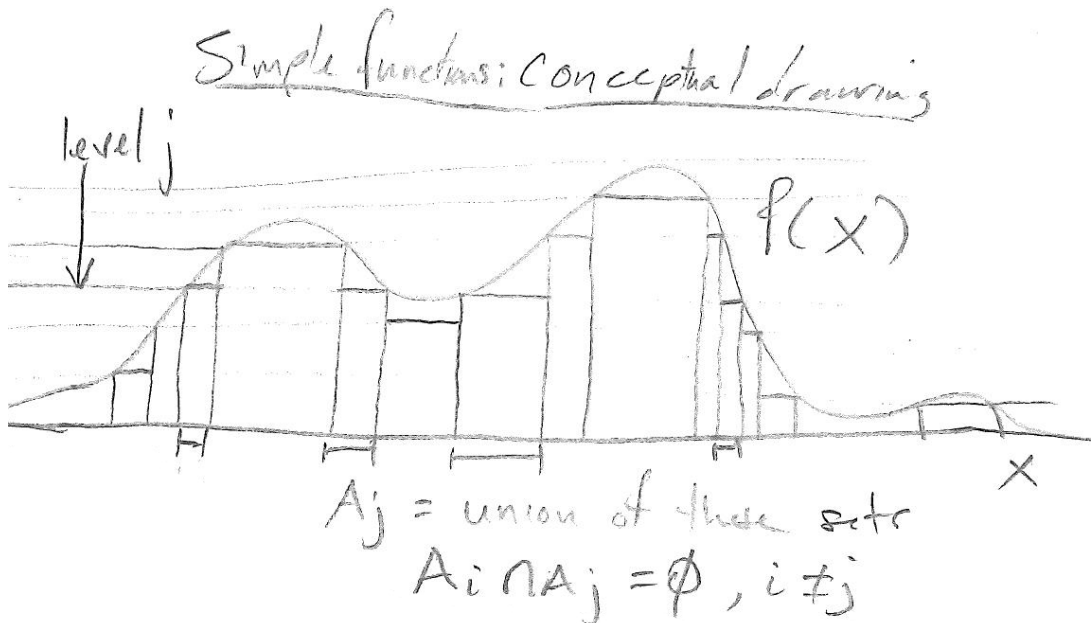 Simple functions: Conceptual drawing
level j
f(x)
x
Aj = union of these sets
Ai ∩ Aj = ϕ, i ≠ j